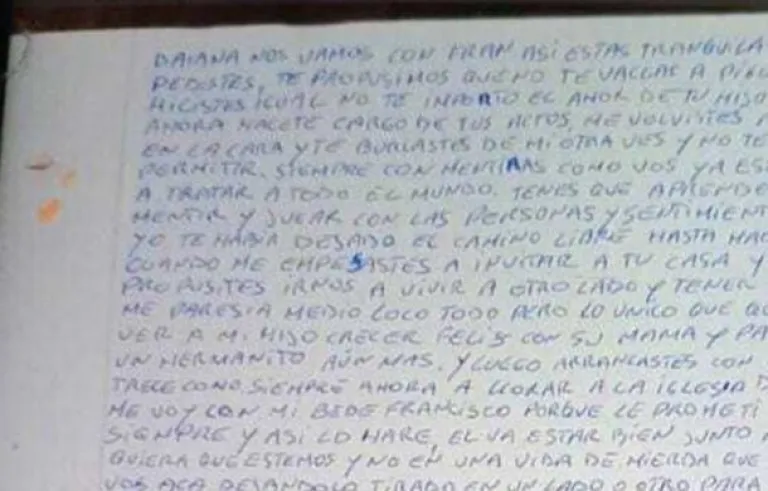 DAIANA NOS VAMOS CON FRAN ASI ESTAS TRANQUILA
PEDISTES, TE PROPUSIMOS QUE NO TE VALLAS A
HICISTES IGUAL NO TE INPORTO EL AMOR DE TU HIJO
AHORA HACETE CARGO DE TUS ACTOS, ME VOLVISTES A
EN LA CARA Y TE BURLASTES DE MI OTRA VES Y NO TE
PERMITIR. SIEMPRE CON MENTIRAS COMO VOS YA ES
A TRATAR A TODO EL MUNDO. TENES QUE APRENDE
MENTIR Y JUGAR CON LAS PERSONAS Y SENTIMIENT
YO TE HABIA DEJADO EL CAMINO LIBRE HASTA HAC
CUANDO ME EMPESASTES A INVITAR A TU CASA Y
PROPUSITES IRNOS A VIVIR A OTRO LADO Y TENER
ME PARESIA MEDIO LOCO TODO PERO LO UNICO QUE
VER A MI HIJO CRECER FELIS CON SU MAMA Y PA
UN HERMANITO AÚN MAS. Y LUEGO ARRANCASTES CON
TRECE COMO SIEMPRE AHORA A LLORAR A LA IGLESIA D
ME VOY CON MI BEBE FRANCISCO PORQUE LE PROMETI
SIENPRE Y ASI LO HARE, EL VA ESTAR BIEN JUNTO A
QUIERA QUE ESTEMOS Y NO EN UNA VIDA DE MIERDA QUE
VOS ACA DEJANDOLO TIRADO EN UN LADO O OTRO PARA